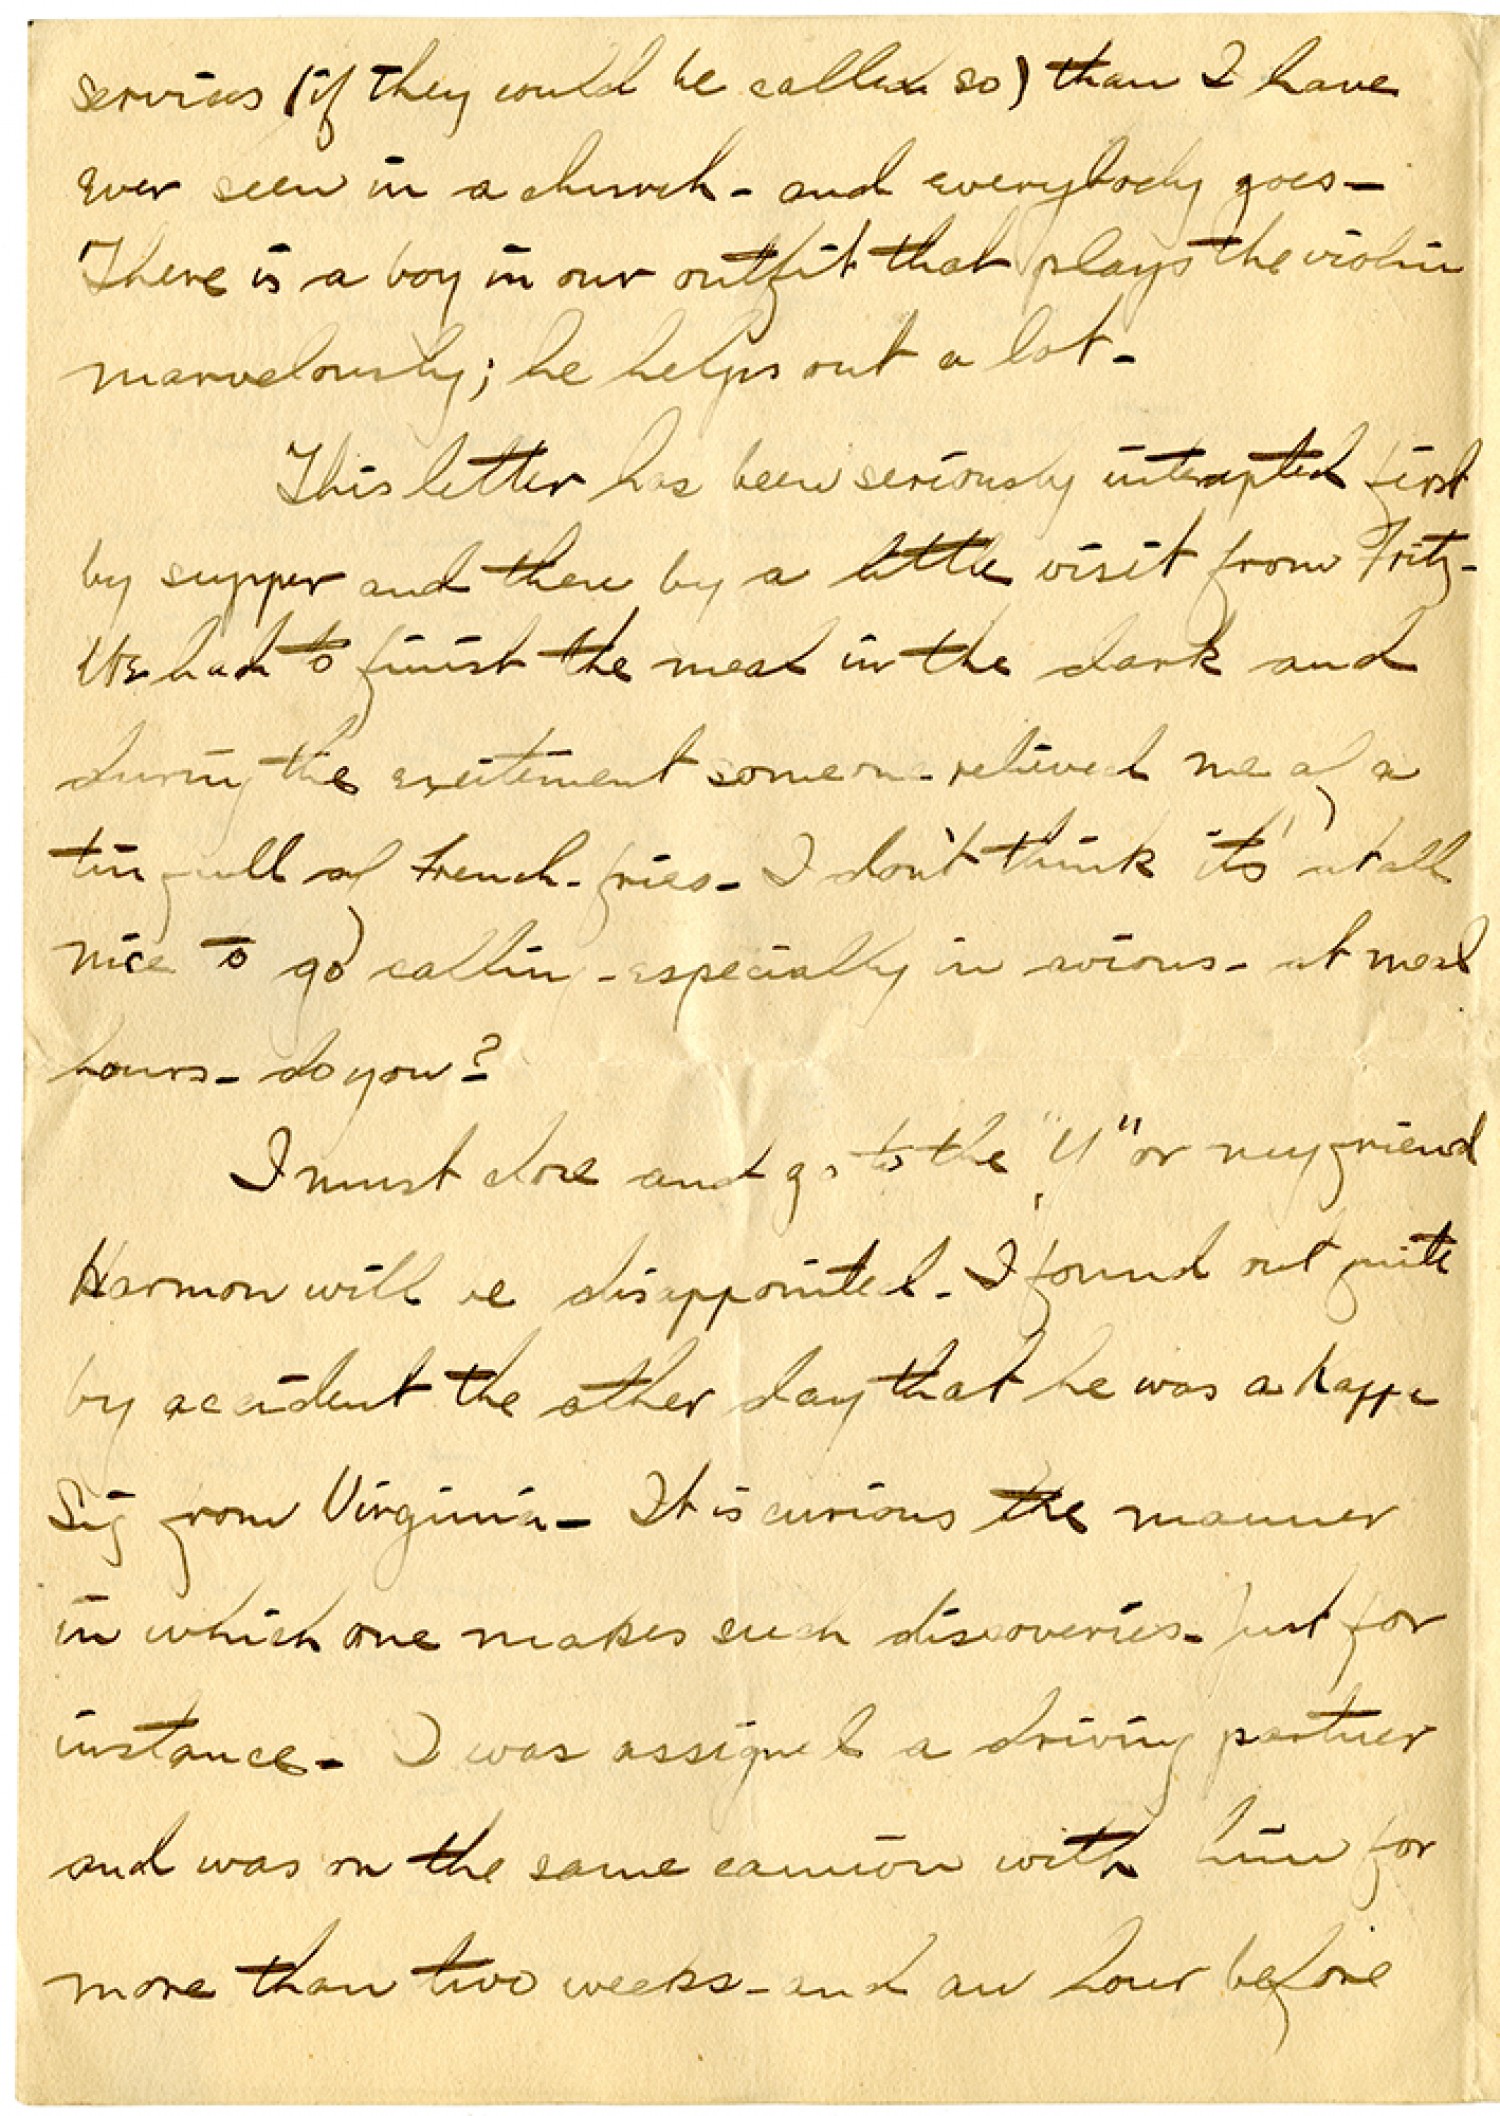 services (if they could be called so) than I have
ever seen in a church - and everybody goes -
There is a boy in our outfit that plays the violin
marvelously; he helps out a lot -
This letter has been seriously interupted first
by supper and then by a little visit from Fritz -
We had to finish the meal in the dark and
during the excitement someone relieved me of a
tin full of french-fries - I don't think its at all
nice to go calling - especially in avions - at meal
hours - do you?
I must close and go to the "Y" or my friend
Harmon will be disappointed - I found out quite
by accident the other day that he was a Kappa
Sig from Virginia - It is curious the manner
in which one makes such discoveries - Just for
instance - I was assigned a driving partner
and was on the same camion with him for
more than two weeks - and an hour before